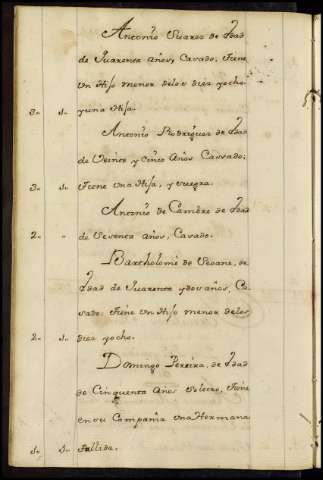 Antonio Suares de Hdad
de Quarenta años, Casado, tiene
un Hijo menor delos diez yocho
3.. 1.. yuna Hija.
Antonio Rodrigues de Hdad
de Veinte y cinco Años Cassado;
3.. 1.. tiene una Hija, y suegra.
Antonio de Cambre de Hdad
2.. .. de Sesenta años, Casado.
Bartholome de Seoane, de
Hdad de Quarenta ydos años, Ca
sado, tiene un Hijo menor delos
2.. 1.. diez yocho.
Domingo Pereira, de Hdad
de Cinquenta Años soltero, tiene
en su Compañia una Hermana
1.. 1.. tullida.